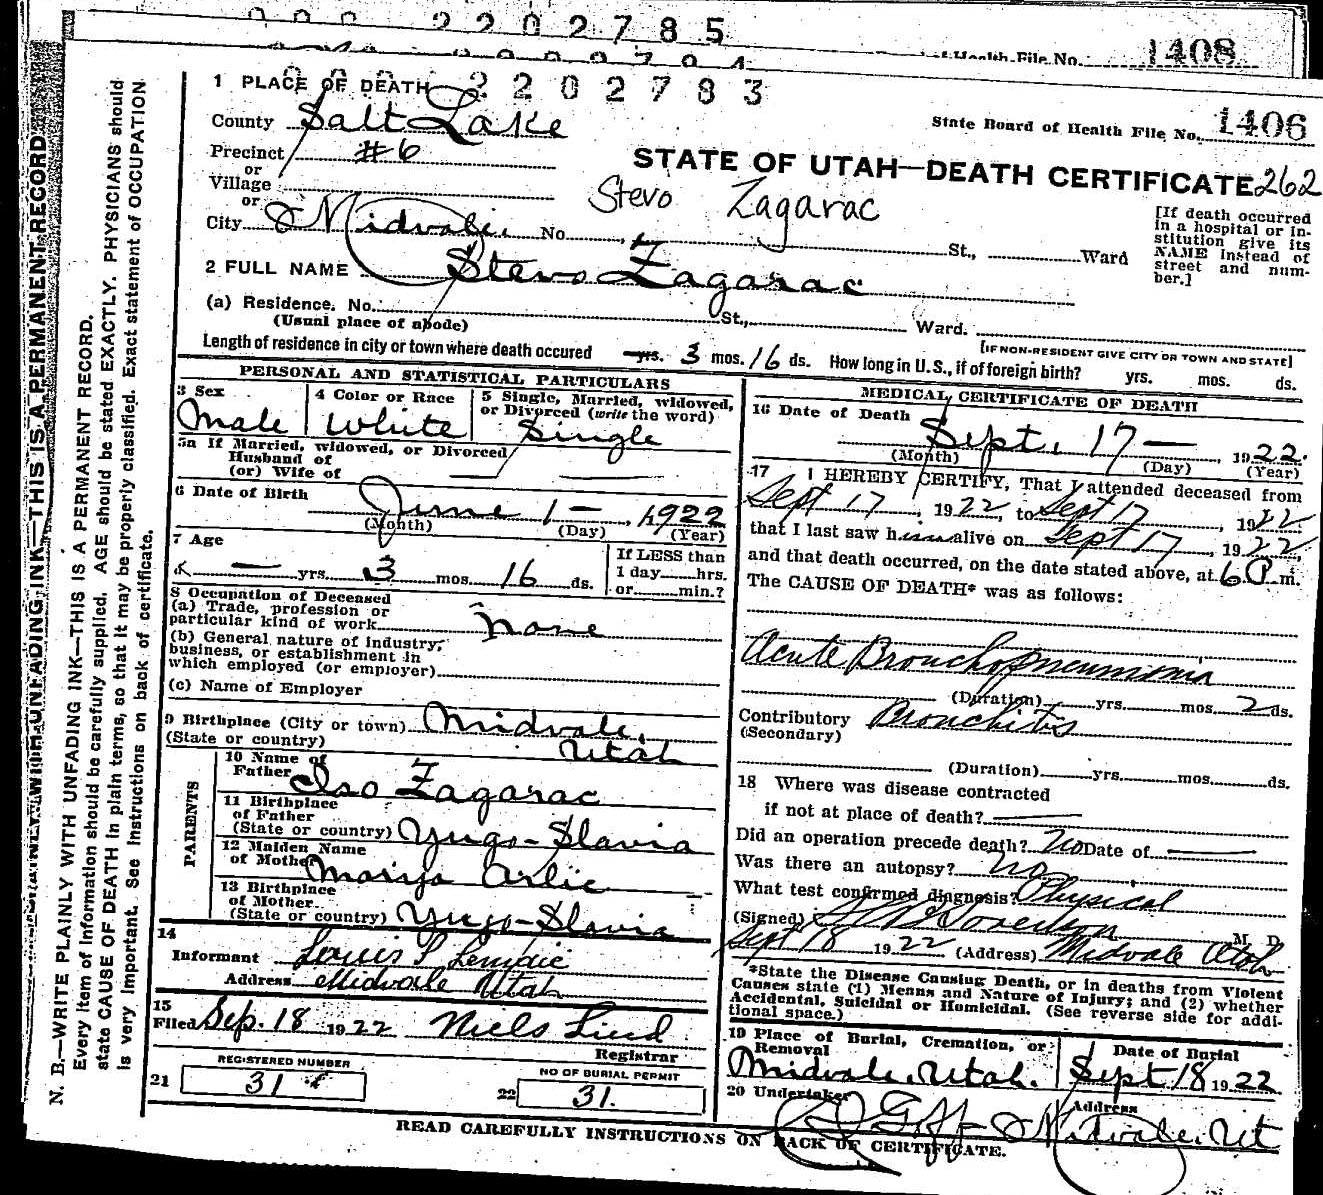 2202785
1408
of Health File No.
2202783
1 PLACE OF DEATH
County Salt Lake
State Board of Health File No. 1406
Precinct #6
or
Village
or
City Midvale. No. St., Ward
STATE OF UTAH—DEATH CERTIFICATE 262
Stevo Zagarac
[If death occurred in a hospital or institution give its NAME instead of street and number.]
2 FULL NAME Stevo Zagarac
(a) Residence. No. St., Ward.
(Usual place of abode)
[IF NON-RESIDENT GIVE CITY OR TOWN AND STATE]
Length of residence in city or town where death occured yrs. 3 mos. 16 ds. How long in U. S., if of foreign birth? yrs. mos. ds.
PERSONAL AND STATISTICAL PARTICULARS
3 Sex
Male
4 Color or Race
White
5 Single, Married, widowed, or Divorced (write the word)
Single
5a If Married, widowed, or Divorced
Husband of
(or) Wife of —
6 Date of Birth
June 1 — , 1922
(Month) (Day) (Year)
7 Age
— yrs. 3 mos. 16 ds.
If LESS than
1 day hrs.
or min.?
8 Occupation of Deceased
(a) Trade, profession or
particular kind of work none
(b) General nature of industry,
business, or establishment in
which employed (or employer)
(c) Name of Employer
9 Birthplace (City or town) Midvale,
(State or country) Utah
PARENTS
10 Name of
Father Iso Zagarac
11 Birthplace
of Father
(State or country) Yugo-Slavia
12 Maiden Name
of Mother Marija Arlic
13 Birthplace
of Mother
(State or country) Yugo-Slavia
14
Informant Louis P
Address Midvale Utah
15
Filed Sep. 18 1922 Niels Lind
Registrar
REGISTERED NUMBER
21 31
NO OF BURIAL PERMIT
22 31.
MEDICAL CERTIFICATE OF DEATH
16 Date of Death
Sept. 17 — , 1922.
(Month) (Day) (Year)
17 I HEREBY CERTIFY, That I attended deceased from
Sept 17, 1922, to Sept 17, 1922
that I last saw him alive on Sept 17, 1922,
and that death occurred, on the date stated above, at 6 P m.
The CAUSE OF DEATH* was as follows:
Acute Bronchopneumonia
(Duration) yrs. mos. 2 ds.
Contributory Bronchitis
(Secondary)
(Duration) yrs. mos. ds.
18 Where was disease contracted
if not at place of death? —
Did an operation precede death? No Date of —
Was there an autopsy? No
What test confirmed diagnosis? Physical
(Signed) M D
Sept 18 1922 (Address) Midvale Utah
*State the Disease Causing Death, or in deaths from Violent
Causes state (1) Means and Nature of Injury; and (2) whether
Accidental, Suicidal or Homicidal. (See reverse side for addi-
tional space.)
19 Place of Burial, Cremation, or
Removal
Midvale, Utah.
Date of Burial
Sept 18 1922
20 Undertaker
Address
Midvale, Ut
READ CAREFULLY INSTRUCTIONS ON BACK OF CERTIFICATE.
N. B.—WRITE PLAINLY WITH UNFADING INK—THIS IS A PERMANENT RECORD.
Every item of information should be carefully supplied. AGE should be stated EXACTLY. PHYSICIANS should
state CAUSE OF DEATH in plain terms, so that it may be properly classified. Exact statement of OCCUPATION
is very important. See instructions on back of certificate.
UNFADING INK—THIS IS A PERMANENT RECORD